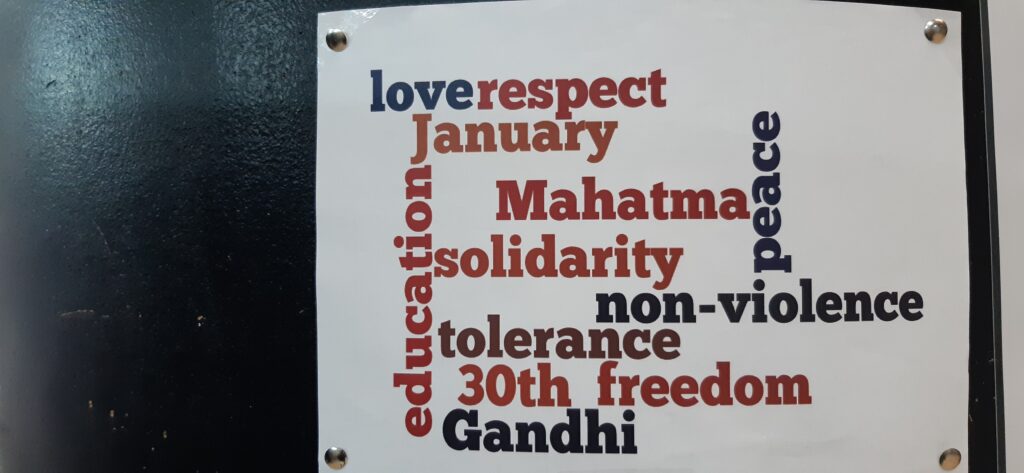 love respect
January
peace
Mahatma
education
solidarity
non-violence
tolerance
30th freedom
Gandhi